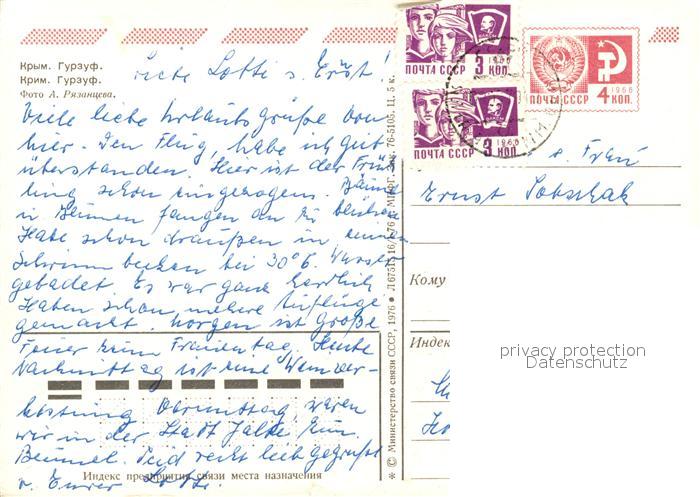 Крым. Гурзуф.
Крим. Гурзуф.
Фото А. Рязанцева.
Liebe Lotti u. Ernst!
Viele liebe Urlaubsgrüße von
hier. Den Flug, habe ich gut
überstanden. Hier ist der Früh-
ling schon eingezogen. Bäume
in Blumen fangen an zu blühen
Habe schon draußen in einem
Schwimmbecken bei 30°C. Wasser
gebadet. Es war ganz herrlich
Haben schon mehre Ausflüge
gemacht. Morgen ist große
Feier zum Frauentag. Heute
Nachmittag ist eine Wander-
Vormittag, waren
wir in der Stadt Jalta zum
Bummel. Seid recht lieb gegrüßt
v. Eurer
Индекс предприятия связи места назначения
* © Министерство связи СССР, 1976 ●
ПОЧТА СССР 3 КОП
1966
ВЛКСМ
ПОЧТА СССР 3 КОП
1966
ПОЧТА СССР 4 КОП.
1966
u. Frau
Ernst
Кому
Индек
privacy protection
Datenschutz